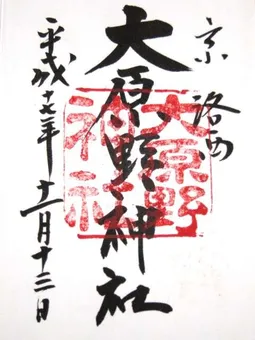 京 洛西
大原野神社
大原野
神社
平成十七年十二月十三日